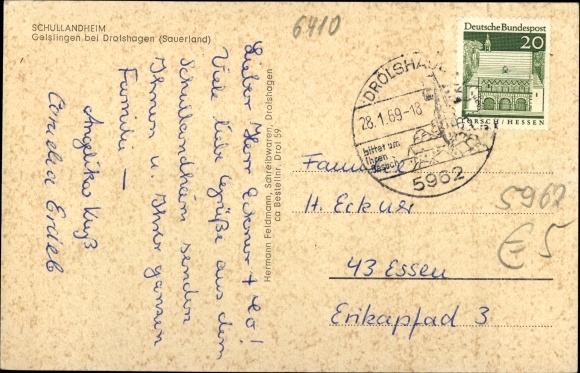 SCHULLANDHEIM
Geislingen bei Drolshagen (Sauerland)
6410
Lieber Herr Eckner + Co!
Viele liebe Grüße aus dem
Schullandheim senden
Ihnen u. Ihrer ganzen
Familie —
Angelika Kuß
Hermann Feldmann, Schreibwaren, Drolshagen
ca Bestellnr. Drol 59
Deutsche Bundespost
20
LORSCH/HESSEN
DROLSHAGEN
28.1.69-18
bittet um
Ihren
Besuch
5962
Familie
H. Eckner
43 Essen
Erikapfad 3
5962
€5